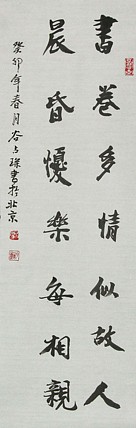 書卷多情似故人
晨昏憂樂每相親
癸卯年春月谷占琛書於北京